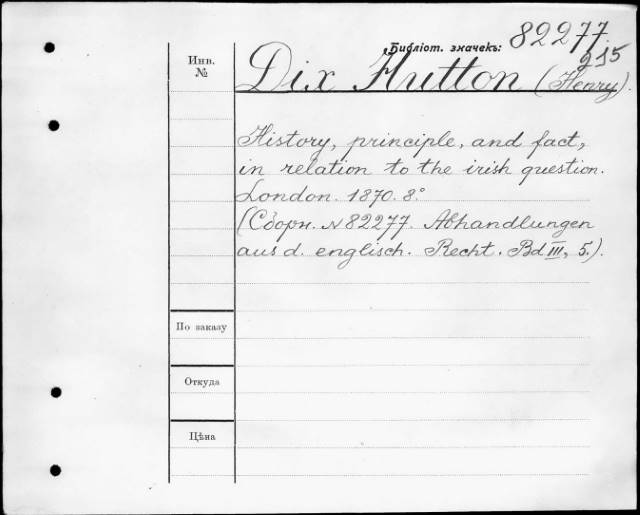 Библіот. значекъ: 82277.
215
Инв.
№
Dix Hutton (Henry).
History, principle, and fact,
in relation to the irish question.
London. 1870. 8°
(Сборн. № 82277. Abhandlungen
aus d. englisch. Recht. Bd III, 5.).
По заказу
Откуда
Цѣна